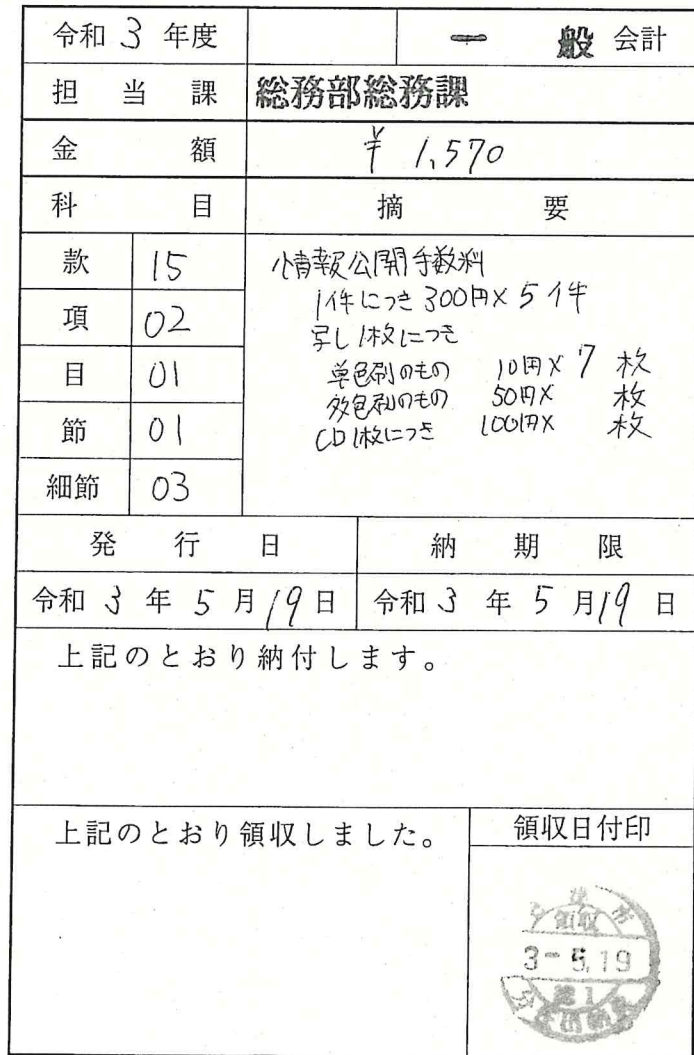 令和 3 年度 一般 会計
担当課 総務部総務課
金額 ¥ 1,570
科目 摘要
款 15
項 02
目 01
節 01
細節 03
情報公開手数料
1件につき 300円× 5 件
写し1枚につき
単色刷のもの 10円× 7 枚
多色刷のもの 50円× 枚
CD1枚につき 100円× 枚
発行日 納期限
令和 3 年 5 月 19 日 令和 3 年 5 月 19 日
上記のとおり納付します。
上記のとおり領収しました。 領収日付印
領収
3-5.19